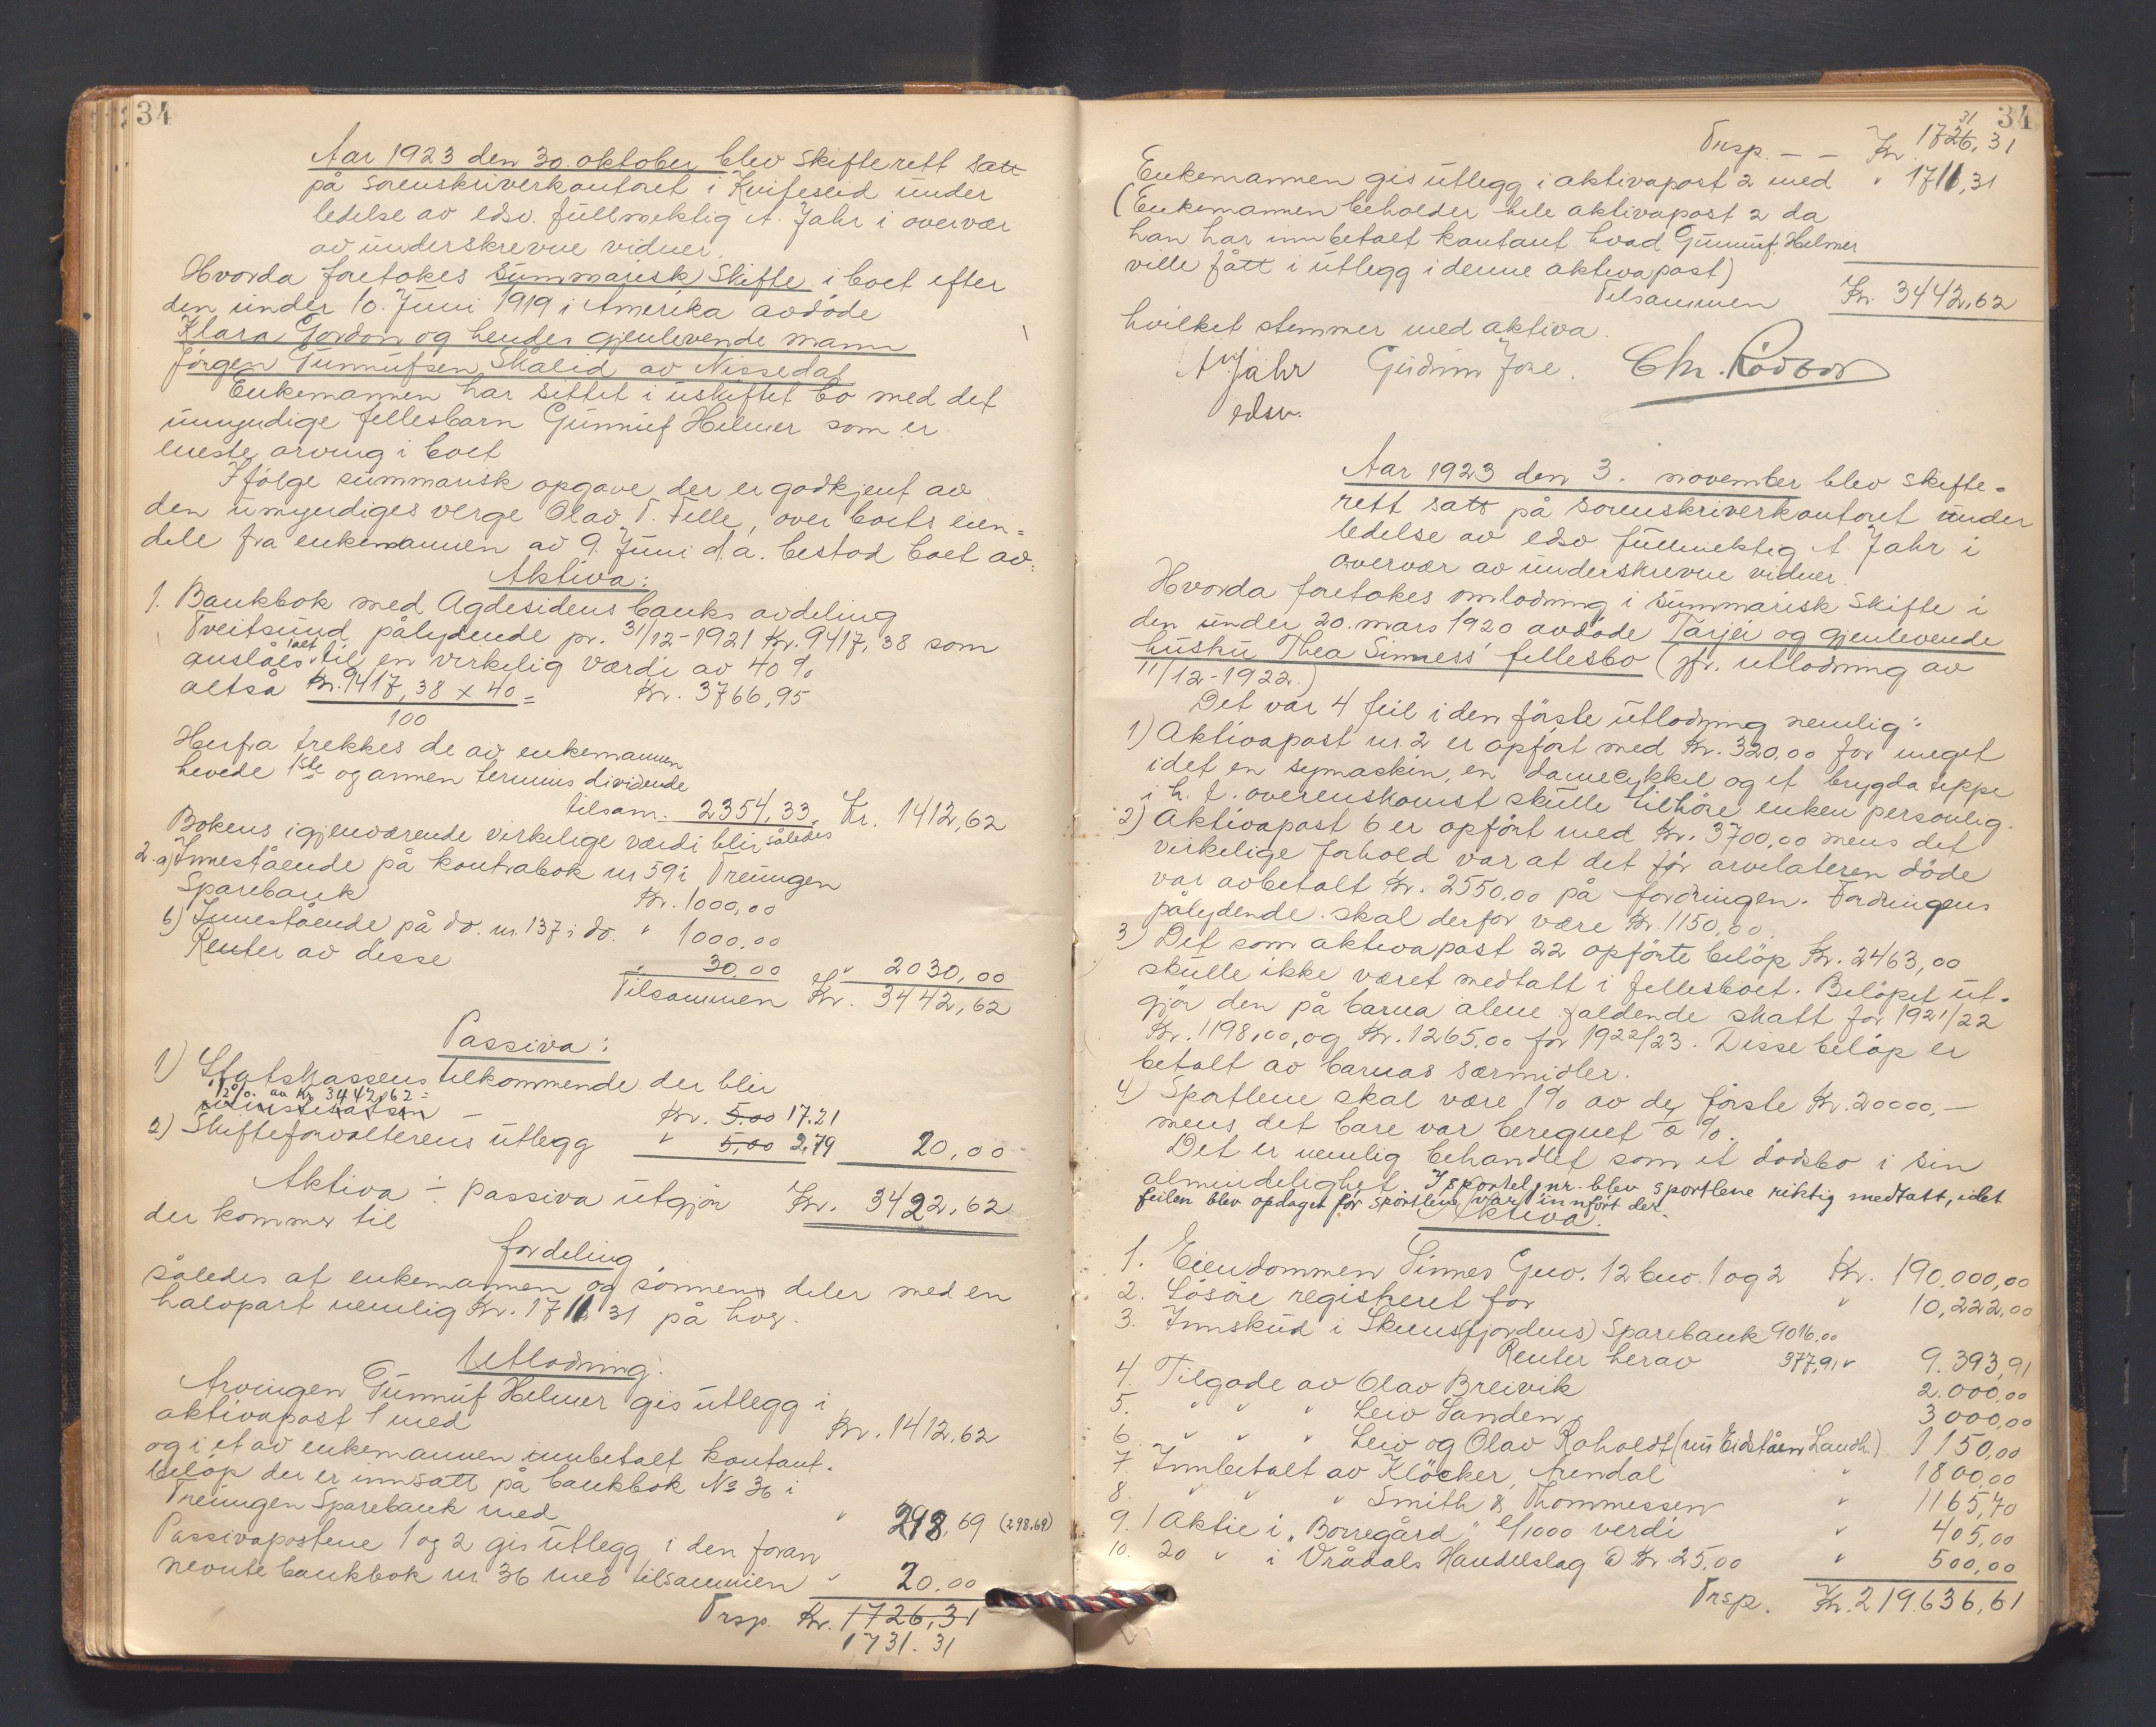 34
Aar 1923 den 30. oktober blev skifterett satt
på sorenskriverkontoret i Kviteseid under
ledelse av edsv. fullmektig A. Jahr i overvær
av underskrevne vidner.
Hvorda foretokes summarisk skifte i boet efter
den under 10. Juni 1919 i Amerika avdøde
Klara Gordon og hendes gjenlevende mann
Jørgen Gunnufsen Skålid av Nissedal
Enkemannen har sittet i uskiftet bo med det
umyndige fellesbarn Gunnuf Helmer som er
eneste arving i boet
Ifølge summarisk opgave der er godkjent av
den umyndiges verge Olav T. Felle, over boets eien=
dele fra enkemannen av 9. Juni d.a. bestod boet av:
Aktiva:
1. Bankbok med Agdesidens banks avdeling
Treitsund pålydende pr. 31/12-1921 Kr. 9417,38 som
anslåes ialt til en virkelig værdi av 40 %
altså Kr. 9417,38 x 40 = Kr. 3766,95
100
Herfra trekkes de av enkemannen
hevede 1ste og annen termins dividende
tilsam. 2354,33. Kr. 1412,62
Bokens igjenværende virkelige værdi blir således
2. a) Innestående på kontrabok nr 59 i Treungen
Sparebank Kr. 1000,00
b) Innestående på do. nr. 137 i do. " 1000.00
Renter av disse " 30.00 " 2030,00
Tilsammen Kr. 3442,62
Passiva:
1) Statskassens tilkommende der blir
1/2 % av Kr 3442,62 =
minstesatsen - Kr. 5.00 17.21
2) Skifteforvalterens utlegg " 5,00 2,79 20,00
Aktiva ÷ passiva utgjør Kr. 3422,62
der kommer til
fordeling
således at enkemannen og sønnen deler med en
halvpart nemlig Kr. 1711,31 på hver.
Utlodning:
Arvingen Gunnuf Helmer gis utlegg i
aktivapost 1 med Kr. 1412.62
og i et av enkemannen innbetalt kontant-
beløp der er innsatt på bankbok No 36 i
Treungen Sparebank med " 298,69 (298.69)
Passivapostene 1 og 2 gis utlegg i den foran
nevnte bankbok nr. 36 med tilsammen " 20.00
Trsp. Kr. 1726,31
1731.31
34
31
Trsp. - - Kr. 1726,31
Enkemannen gis utlegg i aktivapost 2 med " 1711,31
(Enkemannen beholder hele aktivapost 2 da
han har innbetalt kontant hvad Gunnuf Helmer
ville fått i utlegg i denne aktivapost)
Tilsammen Kr. 3442,62
hvilket stemmer med aktiva.
A Jahr Gudrun Jore. Chr. Rødbod
edsv.
Aar 1923 den 3. november blev skifte-
rett satt på sorenskriverkontoret under
ledelse av edsv. fullmektig A. Jahr i
overvær av underskrevne vidner.
Hvorda foretokes omlodning i summarisk skifte i
den under 20. mars 1920 avdøde Tarjei og gjenlevende
hustru Thea Sinness' fellesbo (jfr. utlodning av
11/12-1922.)
Det var 4 feil i den første utlodning nemlig:
1) Aktivapost nr. 2 er opført med Kr. 320,00 for meget
idet en symaskin, en damecykkel og et brygda teppe
i h. t. overenskomst skulle tilhøre enken personlig.
2) Aktivapost 6 er opført med Kr. 3700,00 mens det
virkelige forhold var at det før arvelateren døde
var avbetalt Kr. 2550,00 på fordringen. Fordringens
pålydende skal derfor være Kr. 1150,00.
3) Det som aktivapost 22 opførte beløp Kr. 2463,00
skulle ikke været medtatt i fellesboet. Beløpet ut-
gjør den på barna alene faldende skatt for 1921/22
Kr. 1198,00, og Kr. 1265.00 for 1922/23. Disse beløp er
betalt av barnas særmidler.
4) Sportlene skal være 1% av de første Kr. 20000,-
mens det bare var beregnet %.
Det er nemlig behandlet som et dødsbo i sin
almindelighet. I sportel.nr. blev sportlene riktig medtatt, idet
feilen blev opdaget før sportlene var innført der.
Aktiva.
1. Eiendommen Sinnes Gno. 12 bno. 1 og 2 Kr. 190.000,00
2. Løsøre registreret for " 10,222,00
3. Innskud i Skiens(fjordens) Sparebank 9016.00
Renter herav 377,91 " 9.393,91
4. Tilgode av Olav Breivik 2.000,00
5. " " " Leiv Sanden 3000,00
6. " " " Leiv og Olav Roholdt (nu Eidståen Landh.) 1150,00
7. Innbetalt av Kløcker, Arendal " 1800,00
8. " " " Smith & Thommessen " 1165,70
9. 1 Aktie i "Borregård" c/1000 verdi " 405,00
10. 20 " i Vrådals Handelslag à Kr. 25.00 " 500,00
Trsp. Kr. 219.636,61